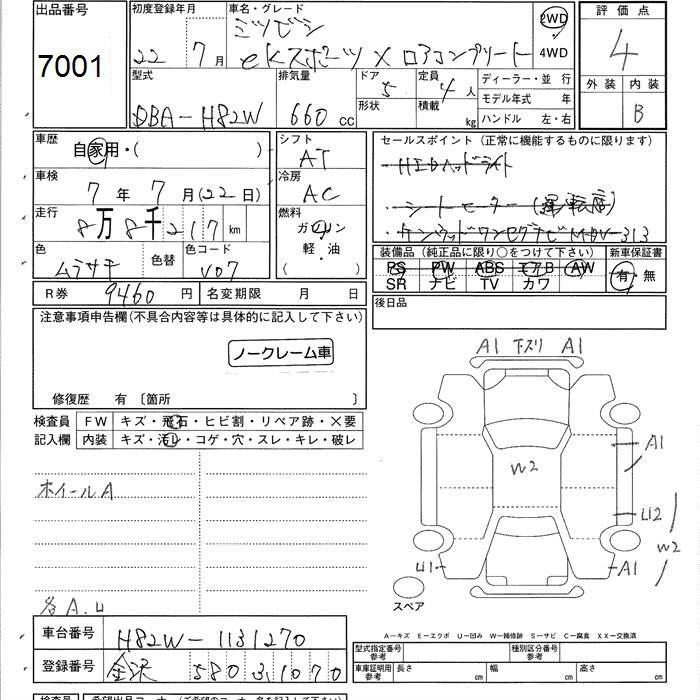 出品番号
7001
初度登録年月
22年 7月
車名・グレード
ミツビシ
eKスポーツ X ロアコンプリート
2WD
4WD
評価点
4
外装 内装
B
型式
DBA-H82W
排気量
660 cc
ドア
5
形状
定員
4 人
積載 kg
ディーラー・並 行
モデル年式 年
ハンドル 左・右
車歴
自家用・( )
シフト
AT
セールスポイント (正常に機能するものに限ります)
・HIDヘッドライト
車検
7 年 7 月 (22 日)
冷房
AC
・シートヒーター (運転席)
走行
8万 8千 217 km
燃料
ガソリン
軽・油
( )
・ケンウッドワンセグナビ MDV-313
色
ムラサキ
色替
色コード
V07
装備品 (純正品に限り○をつけて下さい)
PS PW ABS エアB AW
SR ナビ TV カワ
新車保証書
有・無
R券 9460 円
名変期限 月 日
後日品
注意事項申告欄(不具合内容等は具体的に記入して下さい)
ノークレーム車
修復歴 有 〔箇所 〕
検査員
記入欄
FW キズ・飛石・ヒビ割・リペア跡・×要
内装 キズ・汚レ・コゲ・穴・スレ・キレ・破レ
ホイールA
各A.U
A1 下スリ A1
W2
A1
U2
W2
U1
A1
スペア
A−キズ E−エクボ U−凹み W−補修跡 S−サビ C−腐食 XX−交換済
車台番号 H82W-1131270
登録番号 金沢 580 3 1070
型式指定番号
参考
種別区分番号
参考
車庫証明用
参考
長さ cm
幅 cm
高さ cm
検査員
希望出品コーナー